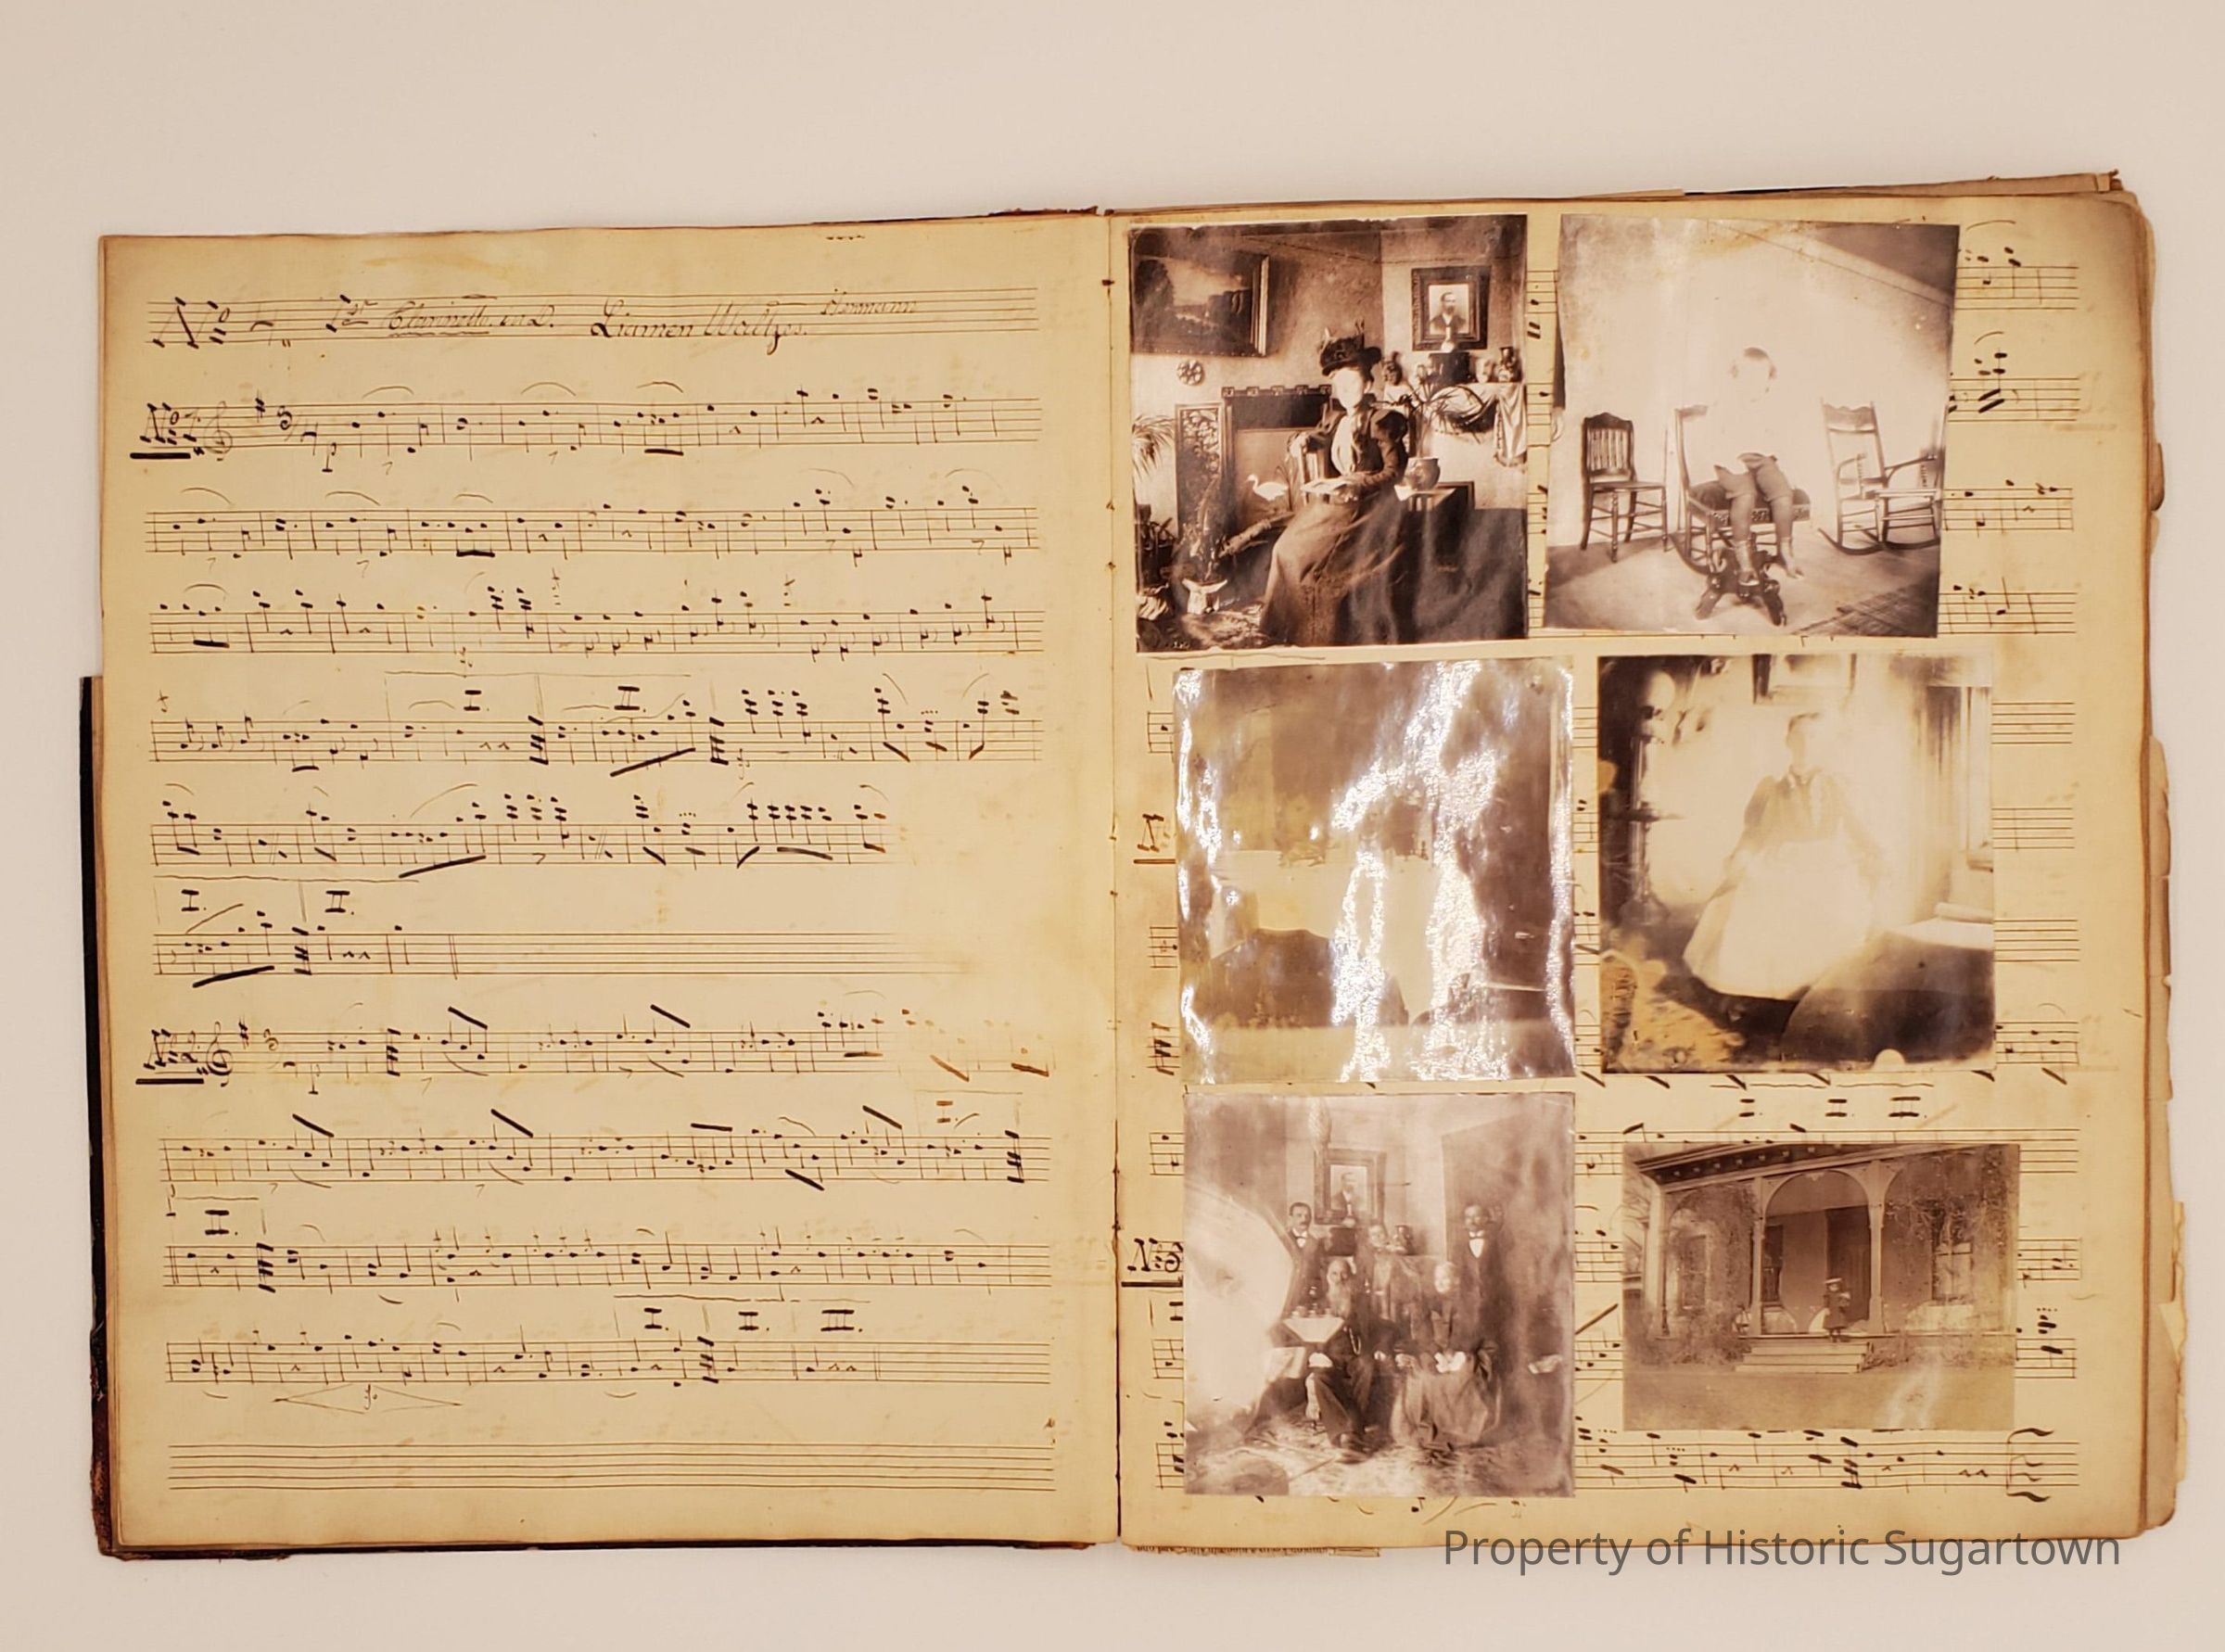 No 4. 1st Clarinette in D. Liamen Waltzes. Hermann
No 1.
p
I. II.
I. II.
No 2.
p
I.
II.
I. II. III.
I. II. III.
No 3
Property of Historic Sugartown